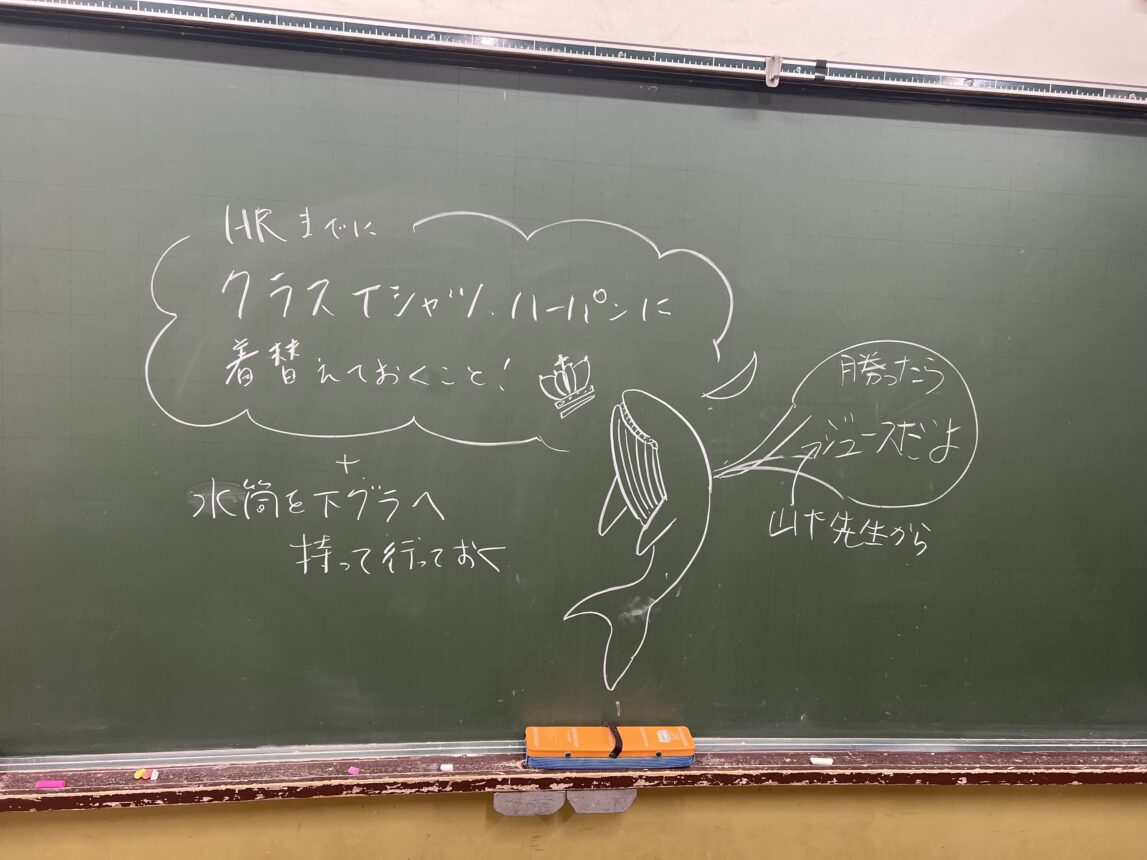 HRまでに
クラスTシャツ、ハーパンに
着替えておくこと!
+
水筒を下グラへ
持って行っておく
勝ったら
ジュースだよ
山下先生から